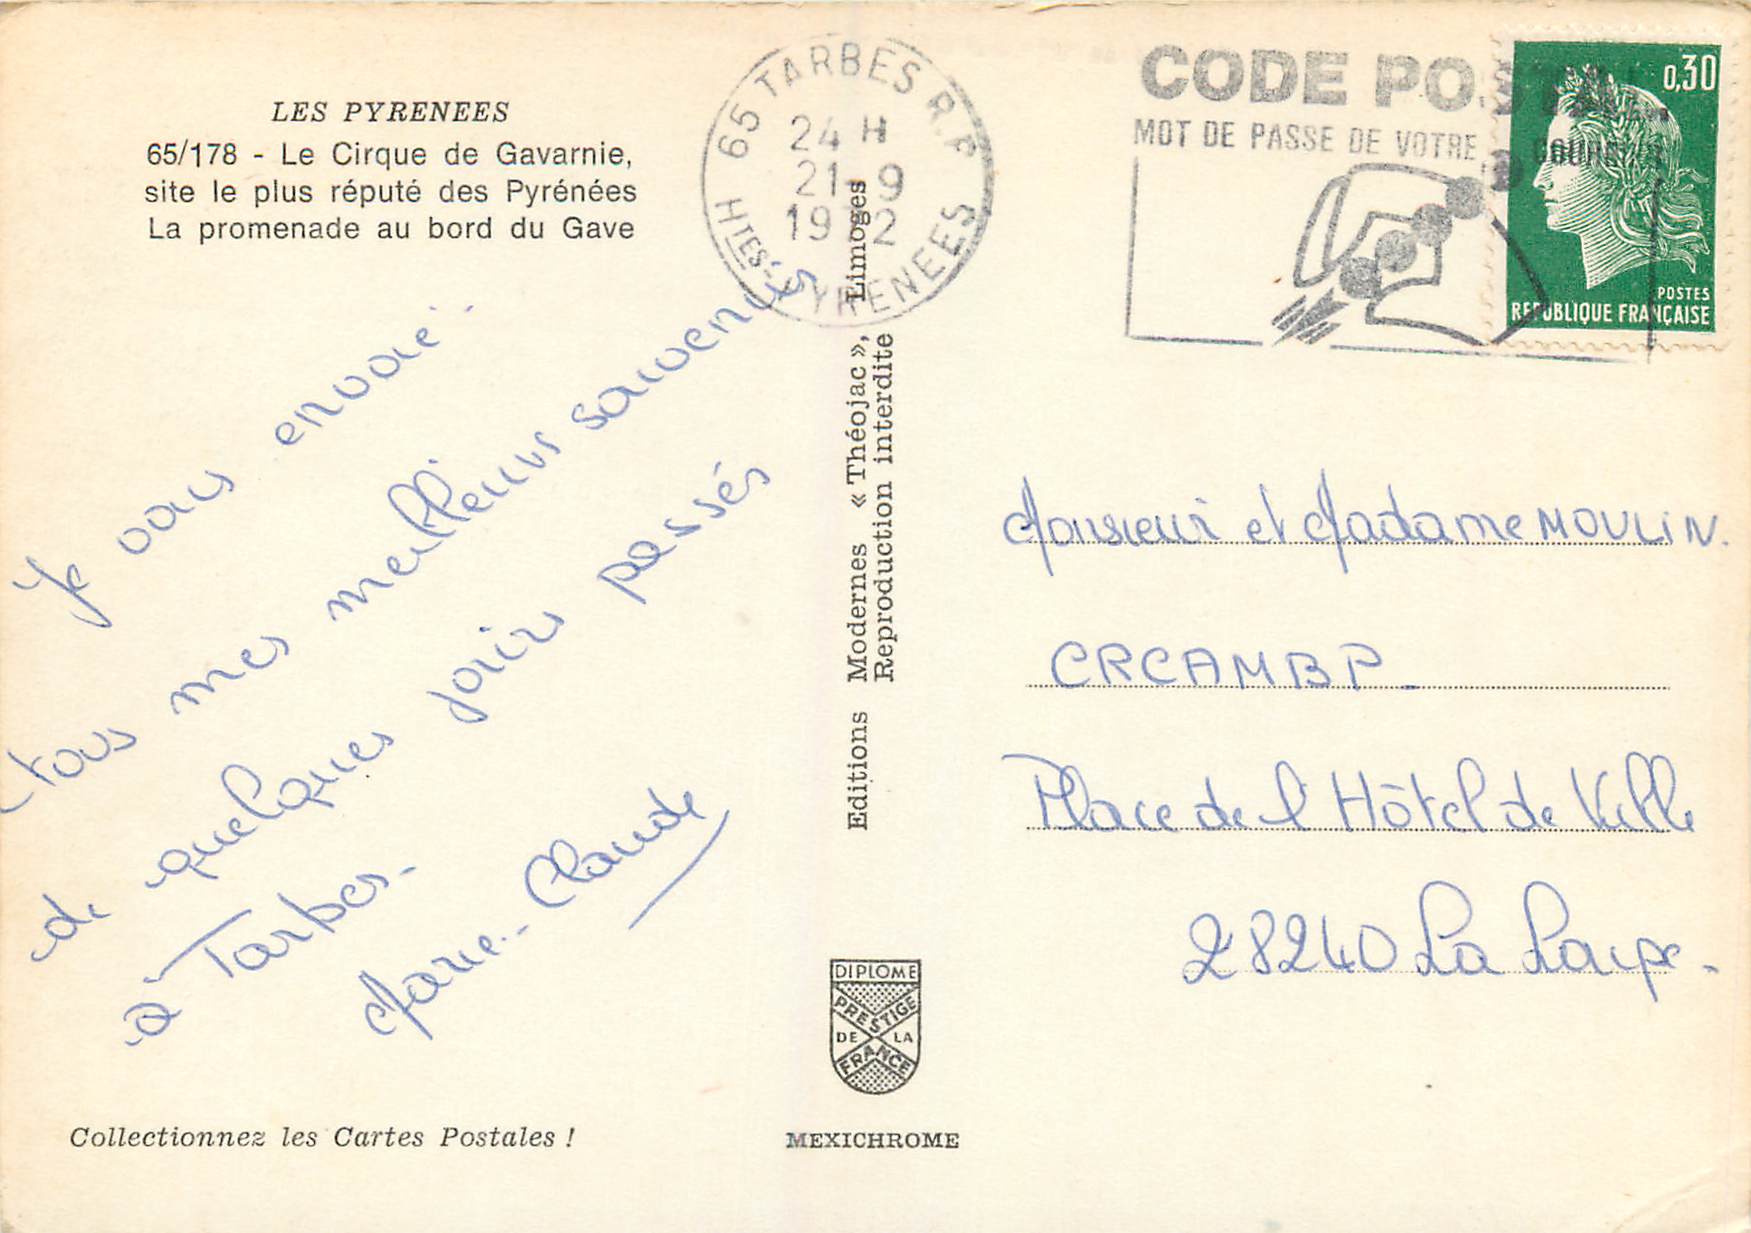 LES PYRENEES
65/178 - Le Cirque de Gavarnie,
site le plus réputé des Pyrénées
La promenade au bord du Gave
Je vous envoie
tous mes meilleurs souvenirs
de quelques jours passés
à Tarbes.
Marie-Claude
Collectionnez les Cartes Postales !
65 TARBES R.P.
24 H
21-9
1972
HTES-PYRENEES
Editions Modernes « Théojac », Limoges
Reproduction interdite
DIPLOME
PRESTIGE
DE LA
FRANCE
MEXICHROME
CODE POSTAL
MOT DE PASSE DE VOTRE COURRIER
0,30
POSTES
REPUBLIQUE FRANÇAISE
Monsieur et Madame MOULIN.
CRCAMBP.
Place de l'Hôtel de Ville
28240 La Loupe.